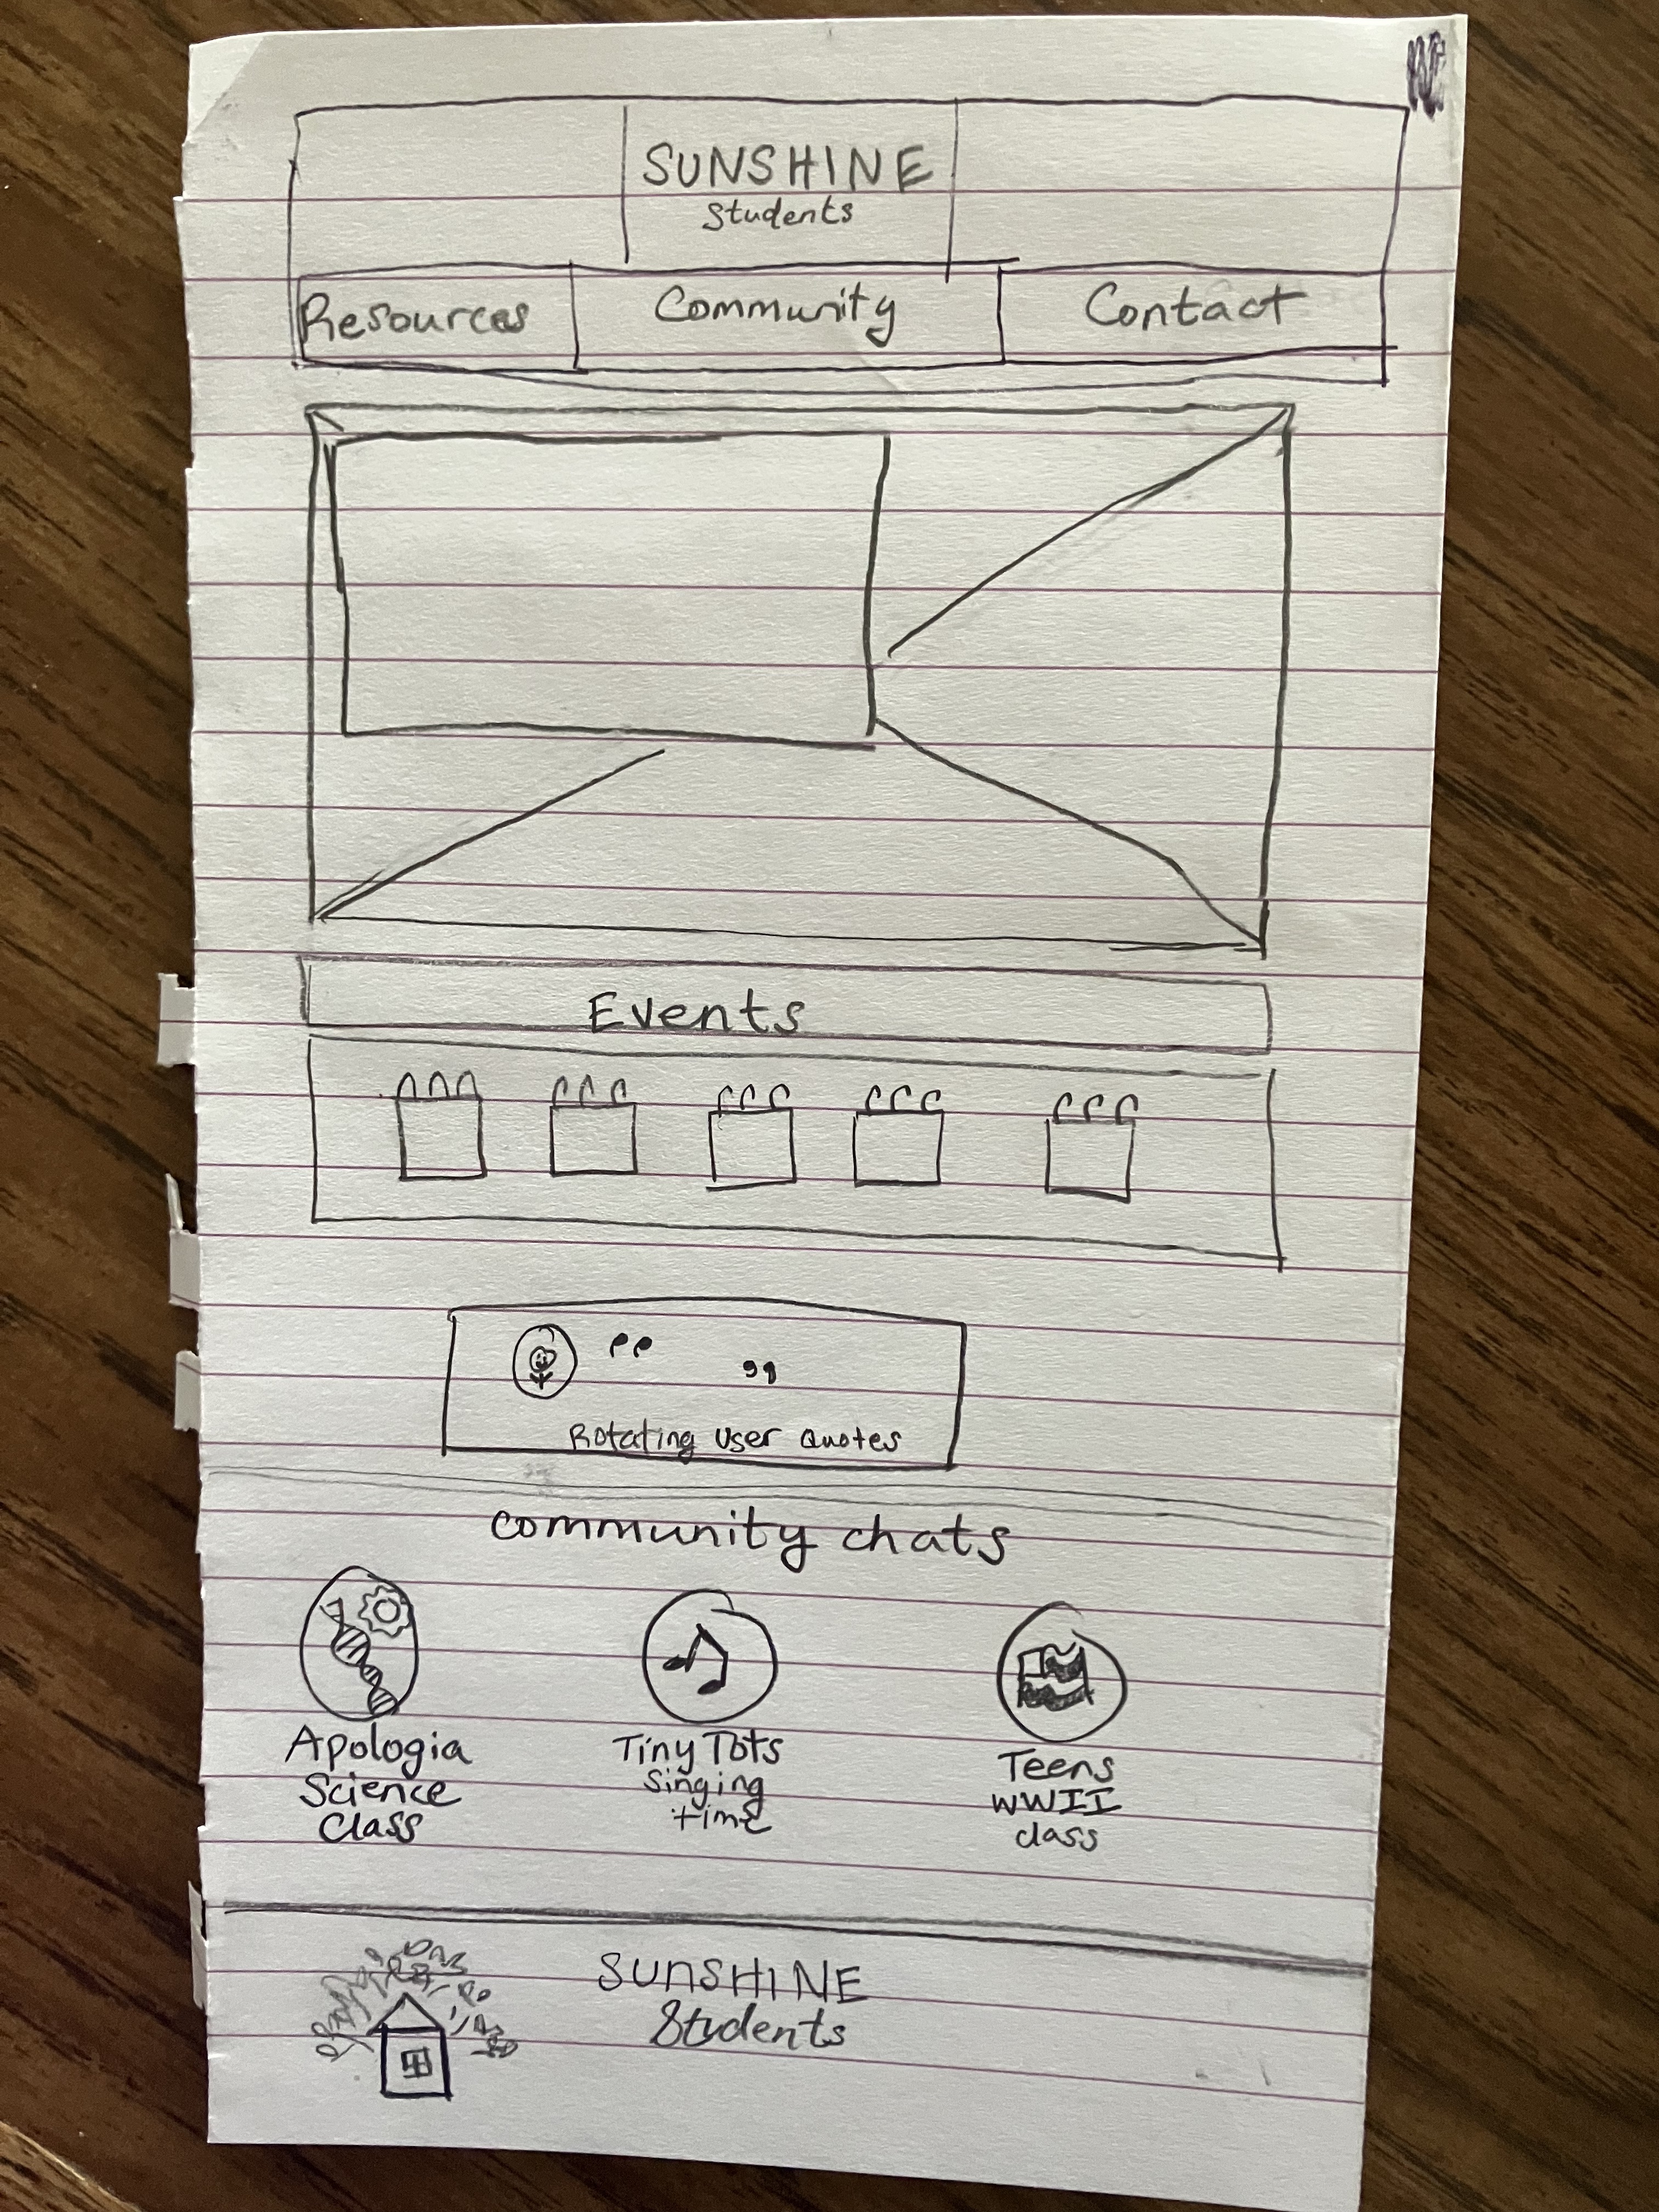 SUNSHINE
Students
Resources Community Contact
Events
Rotating User Quotes
community chats
Apologia
Science
Class
Tiny Tots
singing
time
Teens
WWII
class
SUNSHINE
Students